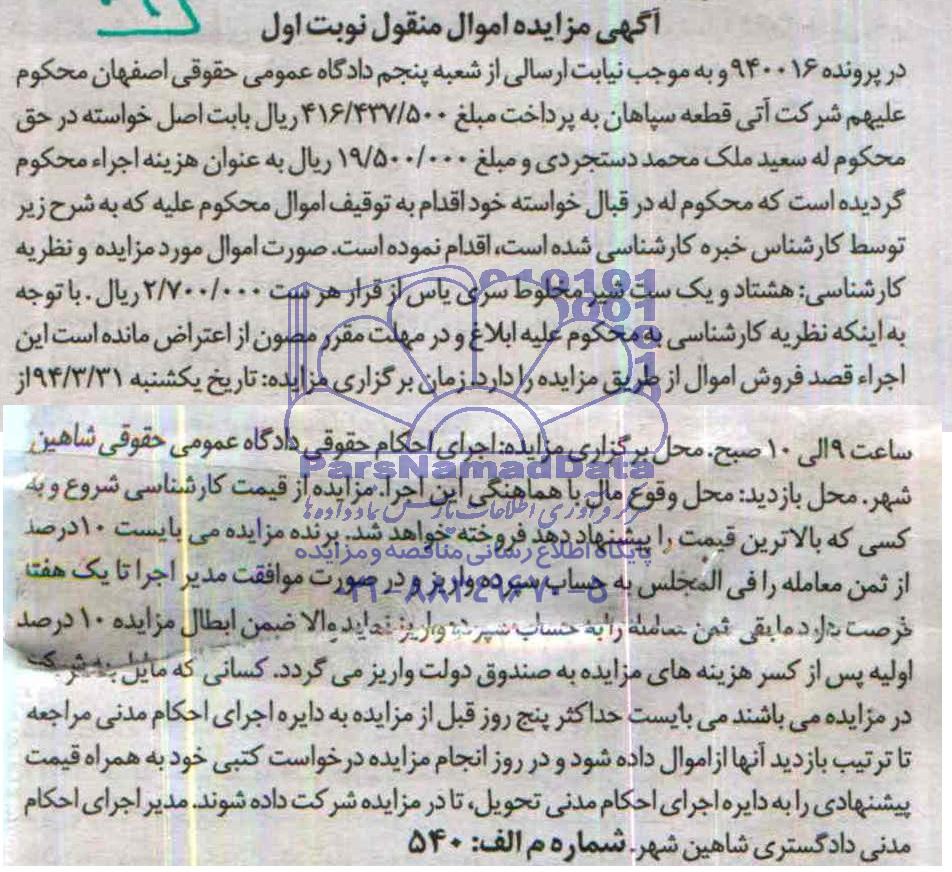 آگهی مزایده اموال منقول نوبت اول
در پرونده ۹۴۰۰۱۶ و به موجب نیابت ارسالی از شعبه پنجم دادگاه عمومی حقوقی اصفهان محکوم
علیهم شرکت آتی قطعه سپاهان به پرداخت مبلغ ۴۱۶/۴۳۷/۵۰۰ ریال بابت اصل خواسته در حق
محکوم له سعید ملک محمد دستجردی و مبلغ ۱۹/۵۰۰/۰۰۰ ریال به عنوان هزینه اجراء محکوم
گردیده است که محکوم له در قبال خواسته خود اقدام به توقیف اموال محکوم علیه که به شرح زیر
توسط کارشناس خبره کارشناسی شده است، اقدام نموده است. صورت اموال مورد مزایده و نظریه
کارشناسی: هشتاد و یک ست شیر مخلوط سری یاس از قرار هر ست ۲/۷۰۰/۰۰۰ ریال. با توجه
به اینکه نظریه کارشناسی به محکوم علیه ابلاغ و در مهلت مقرر مصون از اعتراض مانده است این
اجراء قصد فروش اموال از طریق مزایده را دارد. زمان برگزاری مزایده: تاریخ یکشنبه ۹۴/۳/۳۱ از
ساعت ۹ الی ۱۰ صبح. محل برگزاری مزایده: اجرای احکام حقوقی دادگاه عمومی حقوقی شاهین
ParsNamadData
شهر. محل بازدید: محل وقوع مال با هماهنگی این اجرا. مزایده از قیمت کارشناسی شروع و به
کسی که بالاترین قیمت را پیشنهاد دهد فروخته خواهد شد. برنده مزایده می بایست ۱۰ درصد
پایگاه اطلاع رسانی مناقصه و مزایده
از ثمن معامله را فی المجلس به حساب سپرده واریز و در صورت موافقت مدیر اجرا تا یک هفته
۰۲۱-۸۸۳۴۹۶۷۰-۵
فرصت دارد مابقی ثمن معامله را به حساب سپرده واریز نماید والا ضمن ابطال مزایده ۱۰ درصد
اولیه پس از کسر هزینه های مزایده به صندوق دولت واریز می گردد. کسانی که مایل به شرکت
در مزایده می باشند می بایست حداکثر پنج روز قبل از مزایده به دایره اجرای احکام مدنی مراجعه
تا ترتیب بازدید آنها از اموال داده شود و در روز انجام مزایده درخواست کتبی خود به همراه قیمت
پیشنهادی را به دایره اجرای احکام مدنی تحویل، تا در مزایده شرکت داده شوند. مدیر اجرای احکام
مدنی دادگستری شاهین شهر. شماره م الف: ۵۴۰